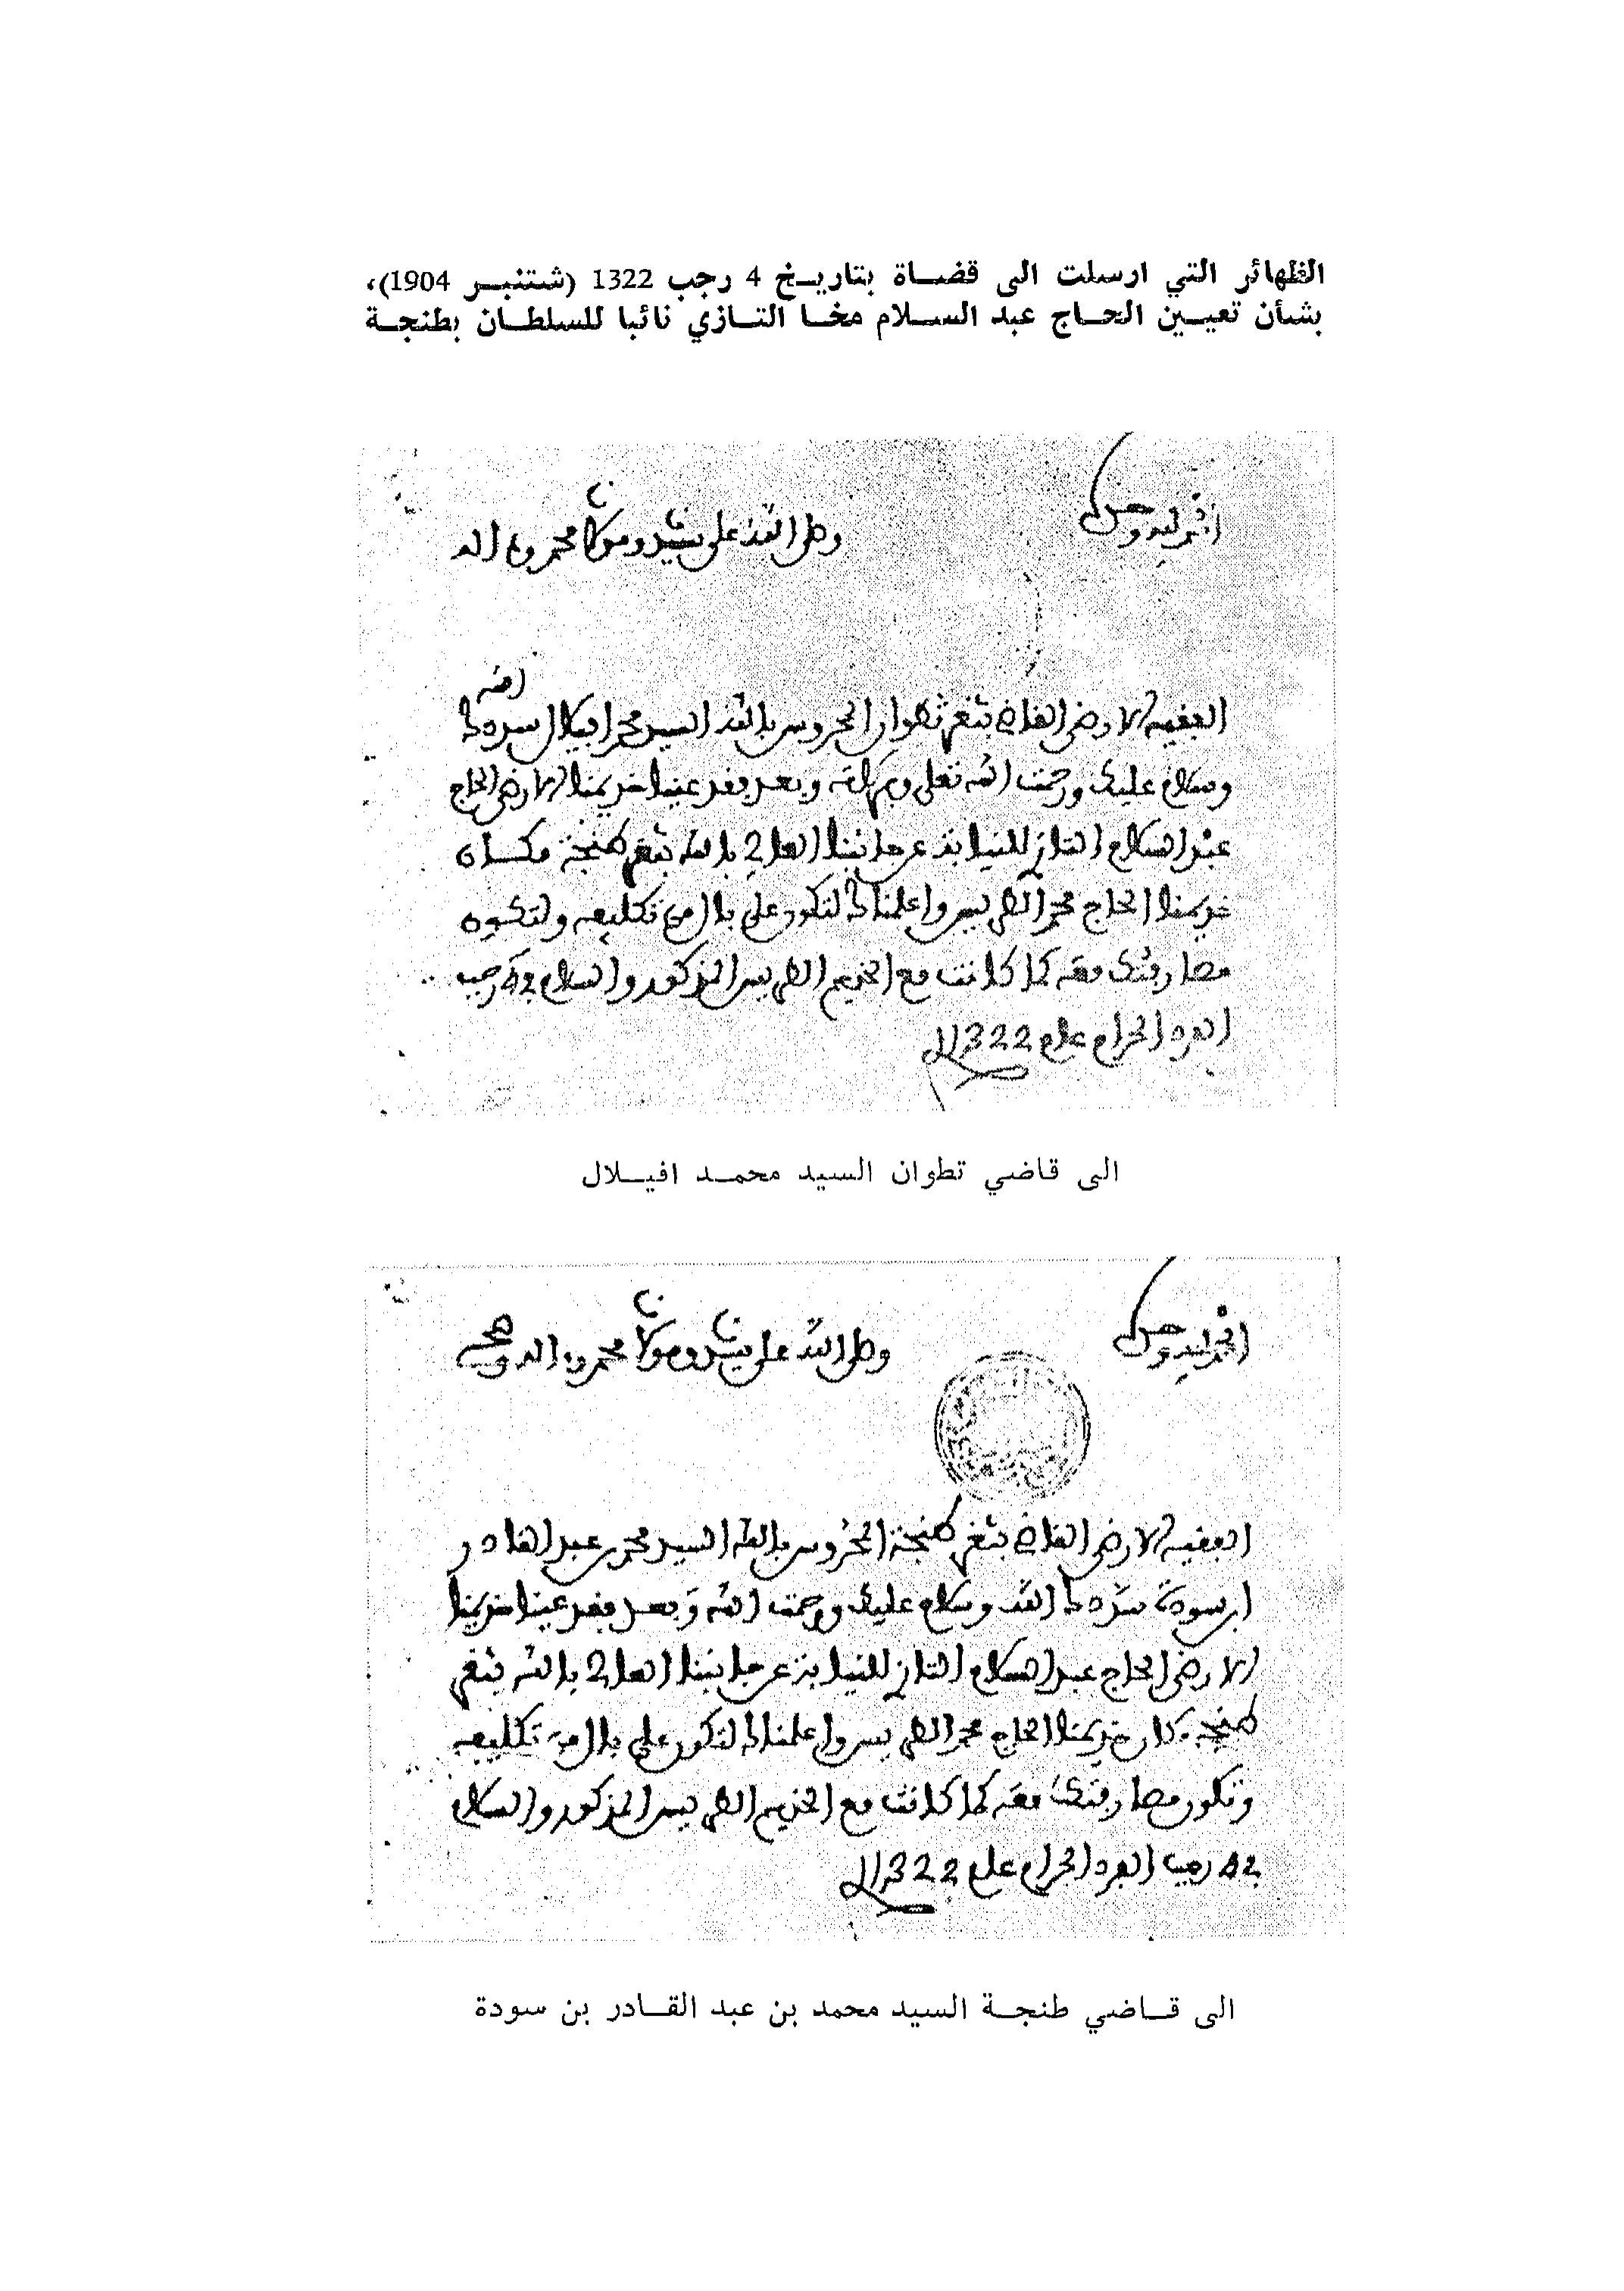 الظهائر التي ارسلت الى قضاة بتاريخ 4 رجب 1322 (شتنبر 1904)،
بشأن تعيين الحاج عبد السلام مخا التازي نائبا للسلطان بطنجة
الحمد لله وحده
وصلى الله على سيدنا ومولانا محمد وءاله
الفقيه الارضى القاضي بثغر تطوان المحروس بالله السيد محمد افيلال سددك الله
وسلام عليك ورحمت الله تعلى وبركاته وبعد فقد عينا خديمنا الارضى الحاج
عبد السلام التازي للنيابة عن جانبنا العالي بالله بثغر طنجة مكان
خديمنا الحاج محمد الطريس واعلمناك لتكون على بال من تكليفه ولتكون
مصارفتك معه كما كانت مع الخديم الطريس المذكور والسلام في 4 رجب
الفرد الحرام عام 1322
الى قاضي تطوان السيد محمد افيلال
الحمد لله وحده
وصلى الله على سيدنا ومولانا محمد وءاله وصحبه
الفقيه الارضى القاضي بثغر طنجة المحروس بالله السيد محمد بن عبد القادر
ابن سودة سددك الله وسلام عليك ورحمت الله وبعد فقد عينا خديمنا
الارضى الحاج عبد السلام التازي للنيابة عن جانبنا العالي بالله بثغر
طنجة مكان خديمنا الحاج محمد الطريس واعلمناك لتكون على بال من تكليفه
وتكون مصارفتك معه كما كانت مع الخديم الطريس المذكور والسلام
في 4 رجب الفرد الحرام عام 1322
الى قاضي طنجة السيد محمد بن عبد القادر بن سودة